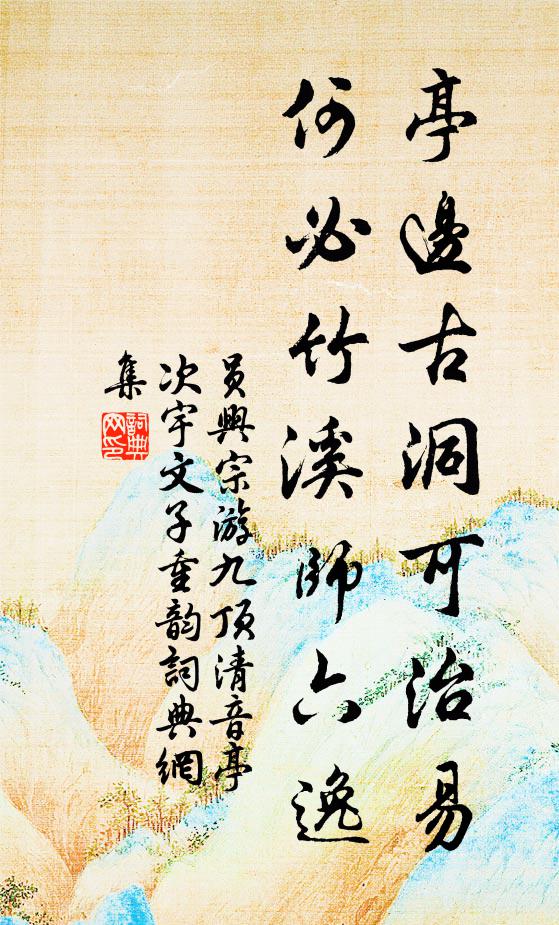 亭邊古洞可治易
何必竹溪師六逸
員興宗游九頂清音亭
次宇文子重韵詞典網
集
詞典網印